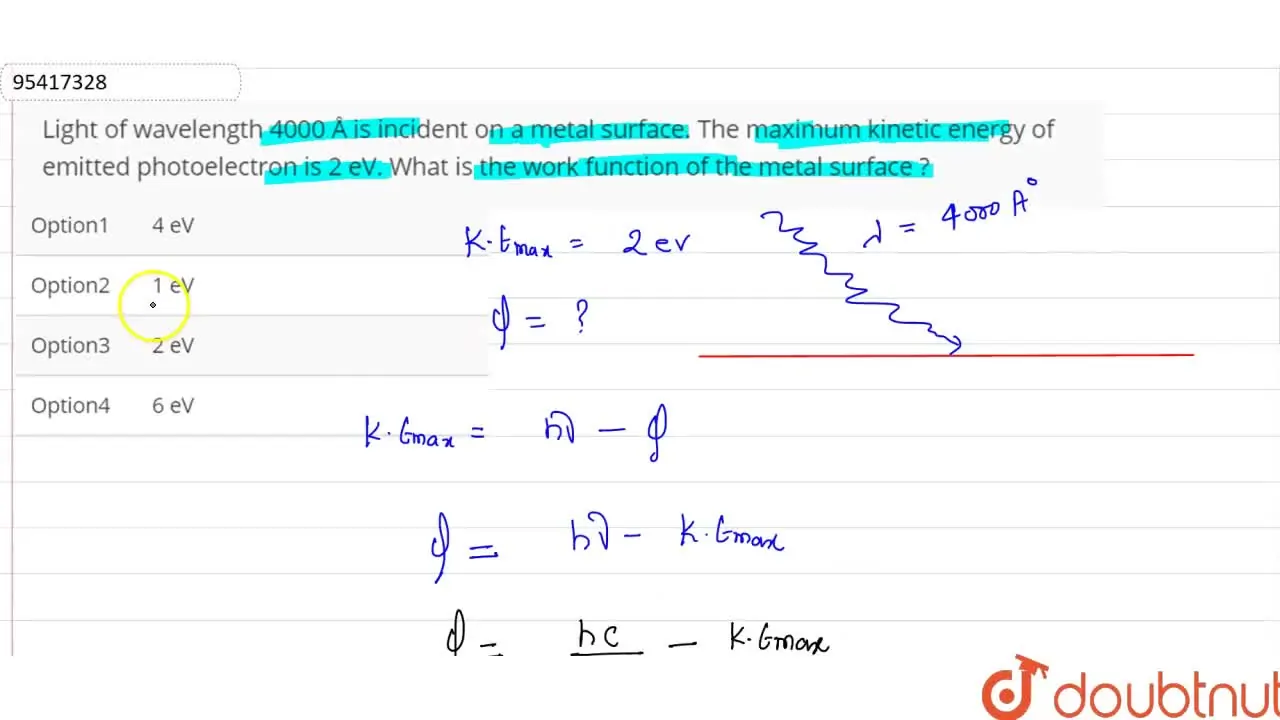 95417328
Light of wavelength 4000 Å is incident on a metal surface. The maximum kinetic energy of
emitted photoelectron is 2 eV. What is the work function of the metal surface ?
Option1 4 eV
Option2 1 eV
Option3 2 eV
Option4 6 eV
K.Emax = 2 ev
λ = 4000 A°
ϕ = ?
K.Emax = hν − ϕ
ϕ = hν − K.Emax
ϕ = hc − K.Emax
doubtnut